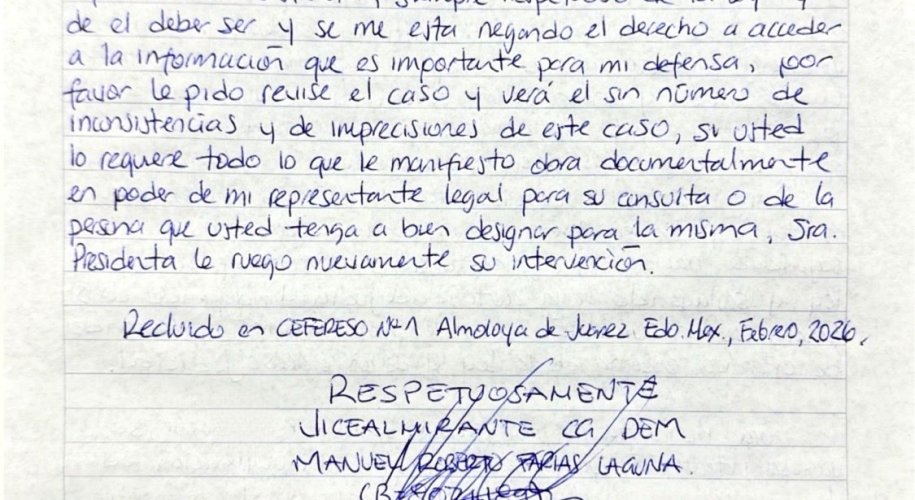 de el deber ser y se me esta negando el derecho a acceder
a la información que es importante para mi defensa, por
favor le pido revise el caso y verá el sin número de
inconsistencias y de imprecisiones de este caso, si usted
lo requiere todo lo que le manifiesto obra documentalmente
en poder de mi representante legal para su consulta o de la
persona que usted tenga a bien designar para la misma, Sra.
Presidenta le ruego nuevamente su intervención.
Recluido en CEFERESO Nº 1 Almoloya de Juarez Edo. Mex., Febrero, 2026.
RESPETUOSAMENTE
VICEALMIRANTE CG DEM
MANUEL ROBERTO FARIAS LAGUNA